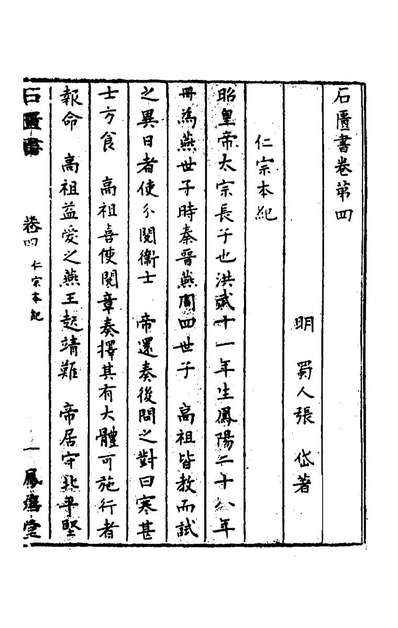 石匱書卷第四
明 蜀人張 岱著
仁宗本紀
昭皇帝太宗長子也洪武十一年生鳳陽二十八年
冊為燕世子時秦晉燕周四世子 高祖皆教而試
之異日者使分閱衛士 帝還奏後問之對曰寒甚
士方食 高祖喜使閱章奏擇其有大體可施行者
報命 高祖益愛之燕王起靖難 帝居守北平堅
石匱書 卷四 仁宗本紀 一 鳳嬉堂